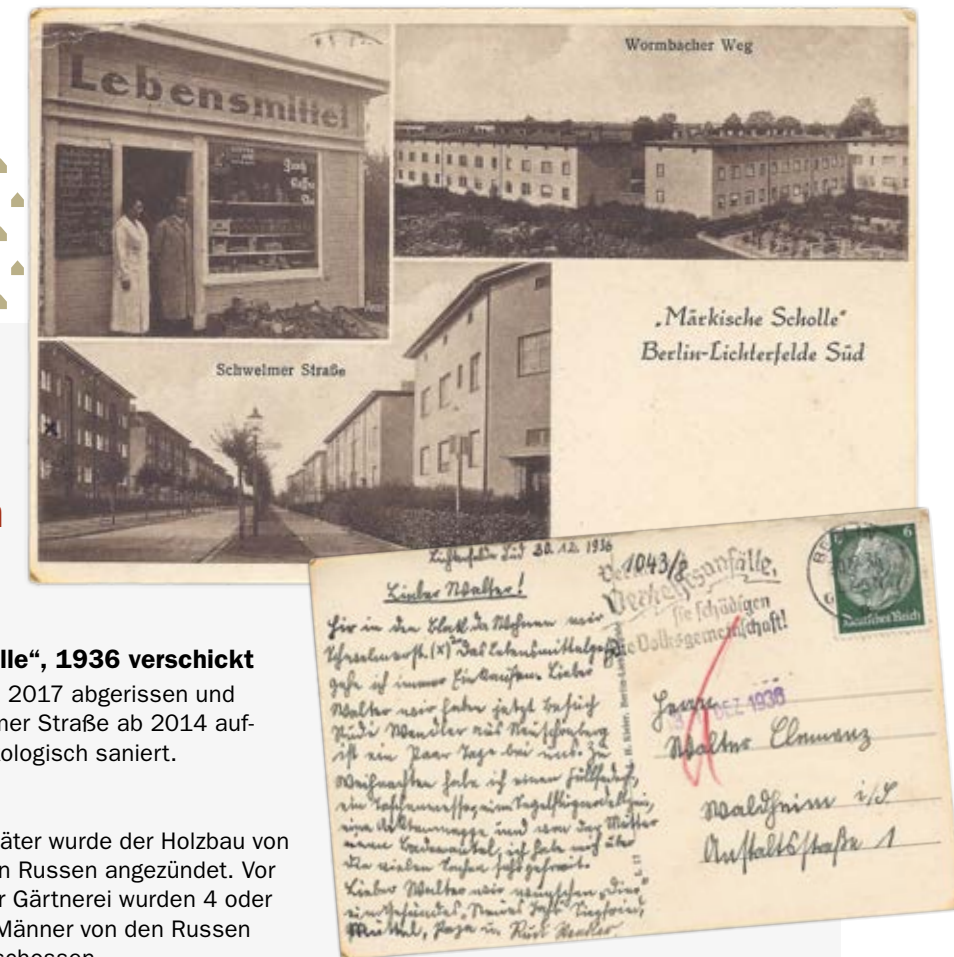 Lebensmittel
Wormbacher Weg
Schwelmer Straße
„Märkische Scholle“
Berlin-Lichterfelde Süd
lle“, 1936 verschickt
2017 abgerissen und
mer Straße ab 2014 auf-
kologisch saniert.
äter wurde der Holzbau von
n Russen angezündet. Vor
r Gärtnerei wurden 4 oder
Männer von den Russen
schossen
Lichterfelde Süd 30.12.1936
Lieber Walter!
hier in den Block da Wohnen wir
Schwelmerst. (x) Das Lebensmittel
gehe ich immer Einkaufen. Lieber
Walter wir haben jetzt Besuch
Rudi Wendler aus Neuschönberg
ist ein Paar Tage bei uns. Zu
Weihnachten habe ich einen
ein Taschenmesser, ein
eine Aktenmappe und von der Mutter
einen ich habe mich über
die vielen Sachen sehr gefreut.
Lieber Walter wir wünschen Dir
ein Gesundes, Neues Jahr Siegfried,
Papa u. Rudi
1043/8
Verkehrsunfälle,
sie schädigen
die Volksgemeinschaft!
6
Deutsches Reich
DEZ 1936
Herrn
Walter Clemenz
Waldheim i/S
Anstaltsstraße 1